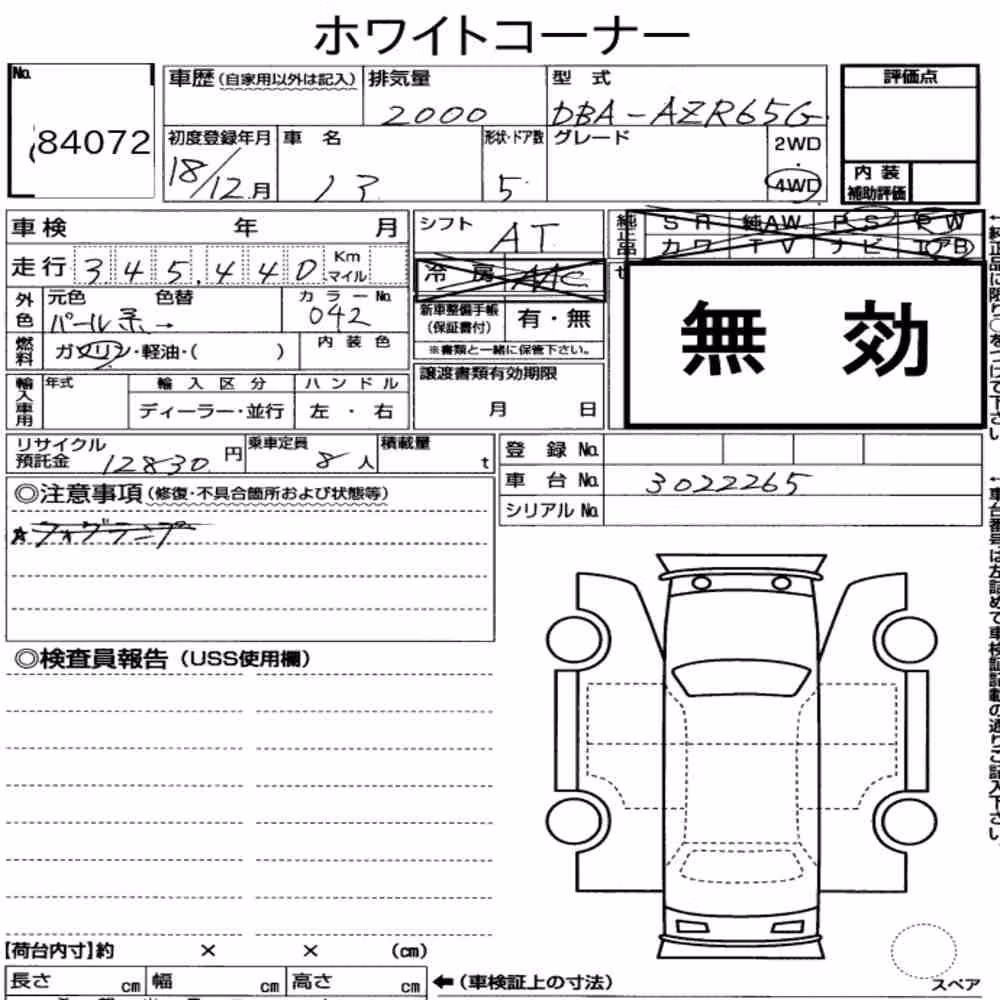 ホワイトコーナー
No. 84072
車歴(自家用以外は記入) 排気量 2000 型式 DBA-AZR65G
評価点
初度登録年月 18/12月 車名 13 形状・ドア数 5 グレード 2WD・4WD
内装補助評価
車検 年 月 シフト AT
純正品 SR 純AW PS PW
カワ TV ナビ エアB
走行 345,440 Km マイル
冷房 AAC
外色 元色 パール系→ 色替 カラーNo. 042
新車整備手帳(保証書付) 有・無
※書類と一緒に保管下さい。
無効
燃料 ガソリン・軽油・( ) 内装色
譲渡書類有効期限 月 日
輸入車用 年式 輸入区分 ハンドル
ディーラー・並行 左・右
リサイクル預託金 12830円 乗車定員 8人 積載量 t
登録No.
車台No. 3022265
シリアルNo.
◎注意事項(修復・不具合箇所および状態等)
★フォグランプ
◎検査員報告(USS使用欄)
【荷台内寸】約 × × (cm)
長さ cm 幅 cm 高さ cm ←(車検証上の寸法)
スペア
←純正品に限り○をつけて下さい
←車台番号は左詰めで車検証記載の通りご記入下さい。